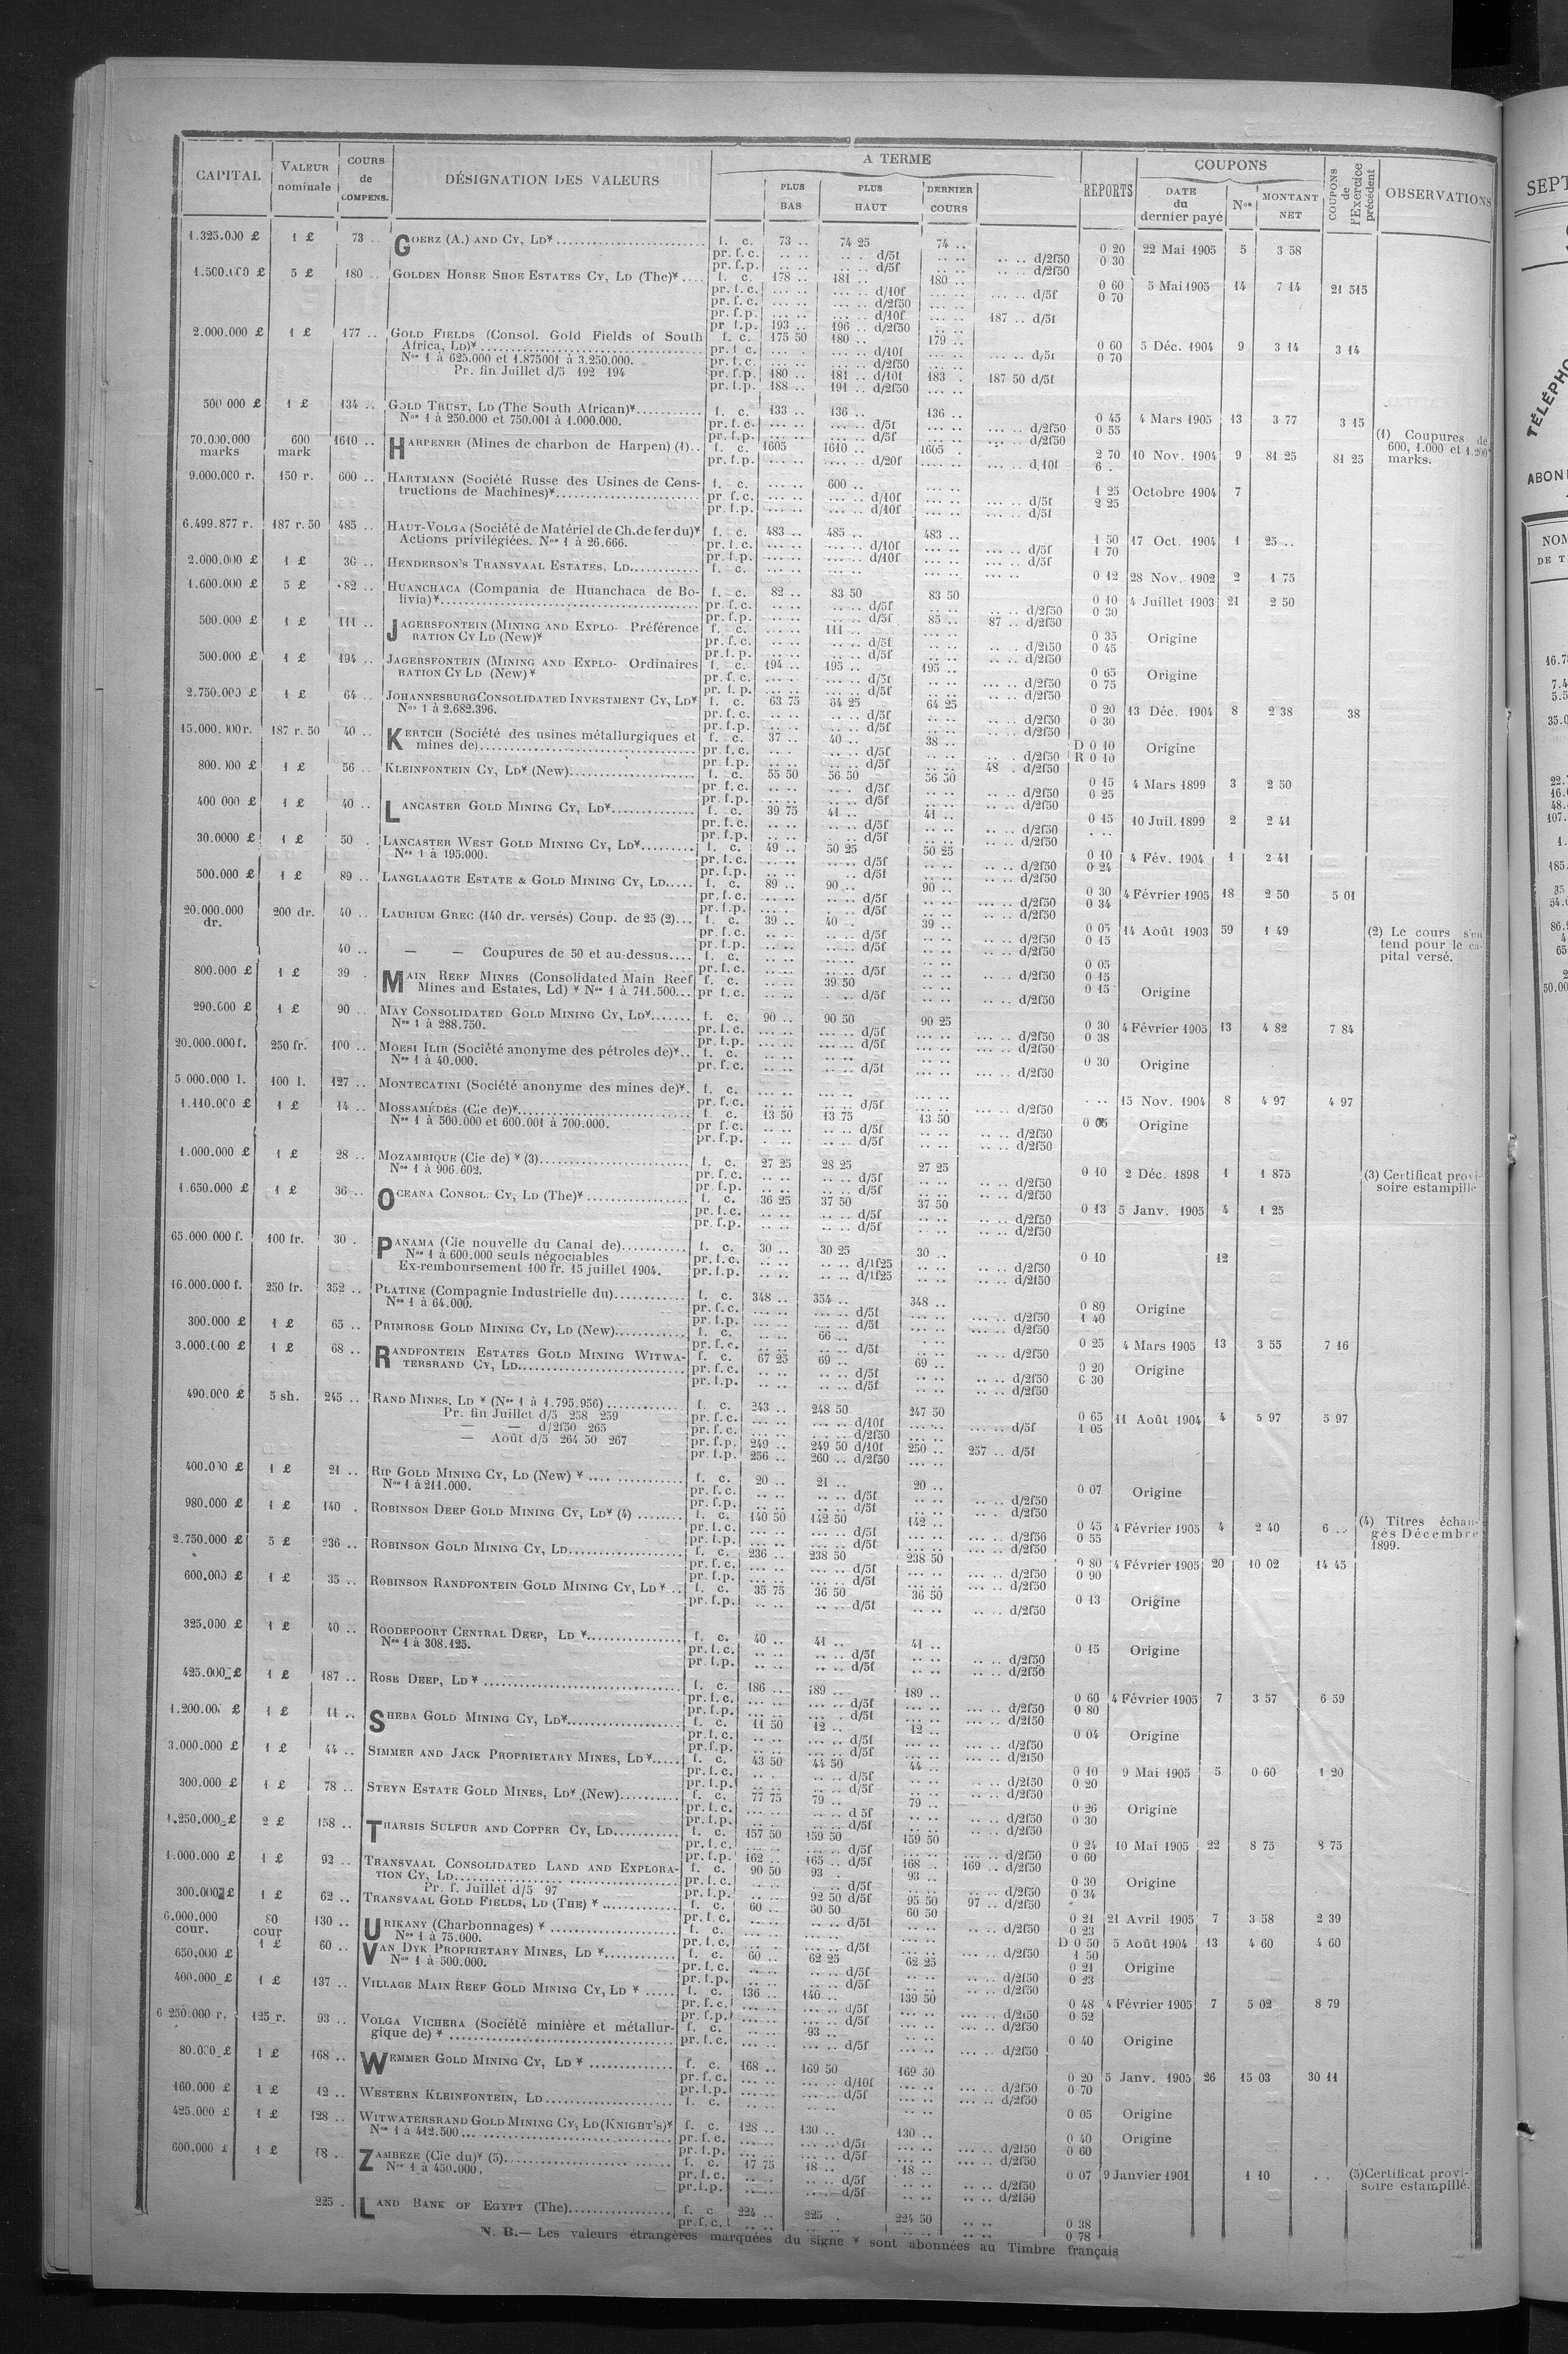 CAPITAL | VALEUR nominale | COURS de COMPENS. | DÉSIGNATION DES VALEURS | A TERME | REPORTS | COUPONS | COUPONS de l'Exercice précédent | OBSERVATIONS
PLUS BAS | PLUS HAUT | DERNIER COURS | DATE du dernier payé | Nos | MONTANT NET
1.325.000 £ 1 £ 73 .. GOERZ (A.) AND CY, LD* f. c. 73 .. 74 25 74 ..
pr. f. c. .. .. d/5f .. .. d/2f50 0 20 22 Mai 1905 5 3 58
pr. f. p. .. .. d/5f .. .. d/2f50 0 30
1.500.000 £ 5 £ 180 .. GOLDEN HORSE SHOE ESTATES CY, LD (The)* f. c. 178 .. 181 .. 180 ..
pr. f. c. d/10f d/5f 0 60 5 Mai 1905 14 7 14 21 515
pr. f. c. d/2f50 0 70
pr. f. p. d/10f 187 .. d/5f
pr. f. p. 193 .. 196 .. d/2f50
2.000.000 £ 1 £ 177 .. GOLD FIELDS (Consol. Gold Fields of South f. c. 175 50 180 .. 179 ..
Africa, LD)* pr. f. c. d/10f d/5f 0 60 5 Déc. 1904 9 3 14 3 14
Nos 1 à 625.000 et 1.875001 à 3.250.000. pr. f. c. d/2f50 0 70
Pr. fin Juillet d/5 192 194 pr. f. p. 180 .. 181 .. d/10f 183 . 187 50 d/5f
pr. f. p. 188 .. 191 .. d/2f50
500 000 £ 1 £ 134 .. GOLD TRUST, LD (The South African)* f. c. 133 .. 136 .. 136 ..
Nos 1 à 250.000 et 750.001 à 1.000.000. pr. f. c. d/5f d/2f50 0 45 0 55 4 Mars 1905 13 3 77 3 15
pr. f. p. d/5f d/2f50
70.000.000 marks 600 mark 1610 .. HARPENER (Mines de charbon de Harpen) (1).. f. c. 1605 1610 .. 1605 . 2 70 10 Nov. 1904 9 81 25 81 25 (1) Coupures de 600, 1.000 et 1.200 marks.
pr. f. p. d/20f d,10f 6 .
9.000.000 r. 150 r. 600 .. HARTMANN (Société Russe des Usines de Cons- f. c. 600 ..
tructions de Machines)* pr. f. c. d/10f d/5f 1 25 Octobre 1904 7
pr. f. p. d/10f d/5f 2 25
6.499.877 r. 187 r. 50 485 .. HAUT-VOLGA (Société de Matériel de Ch. de fer du)* f. c. 483 .. 485 .. 483 ..
Actions privilégiées. Nos 1 à 26.666. pr. f. c. d/10f d/5f 1 50 17 Oct. 1904 1 25 ..
pr. f. p. d/10f d/5f 1 70
2.000.000 £ 1 £ 36 .. HENDERSON'S TRANSVAAL ESTATES, LD. f. c. 0 12 28 Nov. 1902 2 1 75
1.600.000 £ 5 £ 82 .. HUANCHACA (Compania de Huanchaca de Bo- f. c. 82 .. 83 50 83 50
livia)* pr. f. c. d/5f d/2f50 0 10 4 Juillet 1903 21 2 50
pr. f. p. d/5f 85 .. 87 .. d/2f50 0 30
500.000 £ 1 £ 111 .. JAGERSFONTEIN (MINING AND EXPLO- Préférence f. c. 111 ..
RATION CY LD (New)* pr. f. c. d/5f d/2f50 0 35 Origine
pr. f. p. d/5f d/2f50 0 45
500.000 £ 1 £ 194 .. JAGERSFONTEIN (MINING AND EXPLO- Ordinaires f. c. 194 .. 195 .. 195 ..
RATION CY LD (New)* pr. f. c. d/5f d/2f50 0 65 Origine
pr. f. p. d/5f d/2f50 0 75
2.750.000 £ 1 £ 64 .. JOHANNESBURG CONSOLIDATED INVESTMENT CY, LD* f. c. 63 75 64 25 64 25
Nos 1 à 2.682.396. pr. f. c. d/5f d/2f50 0 20 13 Déc. 1904 8 2 38 38
pr. f. p. d/5f d/2f50 0 30
15.000.000 r. 187 r. 50 40 .. KERTCH (Société des usines métallurgiques et f. c. 37 .. 40 .. 38 ..
mines de) pr. f. c. d/5f d/2f50 D 0 10 Origine
pr. f. p. d/5f 48 . d/2f50 R 0 10
800.000 £ 1 £ 56 .. KLEINFONTEIN CY, LD* (New) f. c. 55 50 56 50 56 50
pr. f. c. d/5f d/2f50 0 15 4 Mars 1899 3 2 50
pr. f. p. d/5f d/2f50 0 25
400 000 £ 1 £ 40 .. LANCASTER GOLD MINING CY, LD* f. c. 39 75 41 .. 41 ..
pr. f. c. d/5f d/2f50 0 15 10 Juil. 1899 2 2 41
pr. f. p. d/5f d/2f50
30.0000 £ 1 £ 50 . LANCASTER WEST GOLD MINING CY, LD* f. c. 49 .. 50 25 50 25
Nos 1 à 195.000. pr. f. c. d/5f d/2f50 0 10 4 Fév. 1904 1 2 41
pr. f. p. d/5f d/2f50 0 24
500.000 £ 1 £ 89 .. LANGLAAGTE ESTATE & GOLD MINING CY, LD. f. c. 89 .. 90 .. 90 ..
pr. f. c. d/5f d/2f50 0 30 4 Février 1905 18 2 50 5 01
pr. f. p. d/5f d/2f50 0 34
20.000.000 dr. 200 dr. 40 .. LAURIUM GREC (140 dr. versés) Coup. de 25 (2) f. c. 39 .. 40 . 39 ..
pr. f. c. d/5f d/2f50 0 05 14 Août 1903 59 1 49 (2) Le cours s'en
pr. f. p. d/5f d/2f50 0 15 tend pour le ca-
40 .. — — Coupures de 50 et au-dessus f. c. pital versé.
pr. f. c. d/5f d/2f50 0 05 0 15
800.000 £ 1 £ 39 . MAIN REEF MINES (Consolidated Main Reef f. c. 39 50
Mines and Estates, Ld) * Nos 1 à 711.500 pr. f. c. d/5f d/2f50 0 15 Origine
290.000 £ 1 £ 90 .. MAY CONSOLIDATED GOLD MINING CY, LD* f. c. 90 .. 90 50 90 25
Nos 1 à 288.750. pr. f. c. d/5f d/2f50 0 30 4 Février 1905 13 4 82 7 84
pr. f. p. d/5f d/2f50 0 38
20.000.000 f. 250 fr. 100 .. MOESI ILIR (Société anonyme des pétroles de)* f. c.
Nos 1 à 40.000. pr. f. c. d/5f d/2f50 0 30 Origine
5.000.000 l. 100 l. 127 .. MONTECATINI (Société anonyme des mines de)* f. c.
pr. f. c. d/5f d/2f50 15 Nov. 1904 8 4 97 4 97
1.110.000 £ 1 £ 14 .. MOSSAMÉDÈS (Cie de)* f. c. 13 50 13 75 13 50
Nos 1 à 500.000 et 600.001 à 700.000. pr. f. c. d/5f d/2f50 Origine
pr. f. p. d/5f d/2f50
1.000.000 £ 1 £ 28 .. MOZAMBIQUE (Cie de) * (3) f. c. 27 25 28 25 27 25
Nos 1 à 906.602. pr. f. c. d/5f d/2f50 0 10 2 Déc. 1898 1 1 875 (3) Certificat provi-
pr. f. p. d/5f d/2f50 soire estampillé
1.650.000 £ 1 £ 36 .. OCEANA CONSOL. CY, LD (The)* f. c. 36 25 37 50 37 50
pr. f. c. d/5f d/2f50 0 13 5 Janv. 1905 4 1 25
pr. f. p. d/5f d/2f50
65.000.000 f. 100 fr. 30 . PANAMA (Cie nouvelle du Canal de) f. c. 30 .. 30 25 30 ..
Nos 1 à 600.000 seuls négociables pr. f. c. d/1f25 d/2f50 0 10 12
Ex-remboursement 100 fr. 15 juillet 1904. pr. f. p. d/1f25 d/2f50
16.000.000 f. 250 fr. 352 .. PLATINE (Compagnie Industrielle du) f. c. 348 .. 354 .. 348 ..
Nos 1 à 64.000. pr. f. c. d/5f d/2f50 0 80 Origine
pr. f. p. d/5f d/2f50 1 40
300.000 £ 1 £ 65 .. PRIMROSE GOLD MINING CY, LD (New) f. c. 66 ..
pr. f. c. d/5f d/2f50 0 25 4 Mars 1905 13 3 55 7 16
3.000.000 £ 1 £ 68 .. RANDFONTEIN ESTATES GOLD MINING WITWA- f. c. 67 25 69 .. 69 ..
TERSRAND CY, LD pr. f. c. d/5f d/2f50 0 20 Origine
pr. f. p. d/5f d/2f50 0 30
490.000 £ 5 sh. 245 .. RAND MINES, LD * (Nos 1 à 1.795.956) f. c. 243 .. 248 50 247 50
Pr. fin Juillet d/5 258 259 pr. f. c. d/10f d/5f 0 65 11 Août 1904 4 5 97 5 97
— d/2f50 265 pr. f. c. d/2f50 1 05
— Août d/5 264 50 267 pr. f. p. 249 .. 249 50 d/10f 250 .. 257 .. d/5f
pr. f. p. 256 .. 260 .. d/2f50
400.000 £ 1 £ 21 .. RIP GOLD MINING CY, LD (New) * f. c. 20 .. 21 .. 20 ..
Nos 1 à 211.000. pr. f. c. d/5f d/2f50 0 07 Origine
pr. f. p. d/5f d/2f50
980.000 £ 1 £ 140 . ROBINSON DEEP GOLD MINING CY, LD* (4) f. c. 140 50 142 50 142 .. (4) Titres échan-
pr. f. c. d/5f d/2f50 0 45 4 Février 1905 4 2 40 6 .. gés Décembre
pr. f. p. d/5f d/2f50 0 55 1899.
2.750.000 £ 5 £ 236 .. ROBINSON GOLD MINING CY, LD f. c. 236 .. 238 50 238 50
pr. f. c. d/5f d/2f50 0 80 4 Février 1905 20 10 02 14 45
pr. f. p. d/5f d/2f50 0 90
600.000 £ 1 £ 35 .. ROBINSON RANDFONTEIN GOLD MINING CY, LD * f. c. 35 75 36 50 36 50
pr. f. p. d/5f d/2f50 0 13 Origine
325.000 £ 1 £ 40 .. ROODEPOORT CENTRAL DEEP, LD * f. c. 40 .. 41 .. 41 ..
Nos 1 à 308.125. pr. f. c. d/5f d/2f50 0 15 Origine
pr. f. p. d/5f d/2f50
425.000 £ 1 £ 187 .. ROSE DEEP, LD * f. c. 186 .. 189 .. 189 ..
pr. f. c. d/5f d/2f50 0 60 4 Février 1905 7 3 57 6 59
pr. f. p. d/5f d/2f50 0 80
1.200.00 £ 1 £ 11 .. SHEBA GOLD MINING CY, LD* f. c. 11 50 12 .. 12 ..
pr. f. c. d/5f d/2f50 0 04 Origine
pr. f. p. d/5f d/2f50
3.000.000 £ 1 £ 44 .. SIMMER AND JACK PROPRIETARY MINES, LD* f. c. 43 50 44 50 44 ..
pr. f. c. d/5f d/2f50 0 10 9 Mai 1905 5 0 60 1 20
pr. f. p. d/5f d/2f50 0 20
300.000 £ 1 £ 78 .. STEYN ESTATE GOLD MINES, LD* (New) f. c. 77 75 79 .. 79 ..
pr. f. c. d 5f d/2f50 0 26 Origine
pr. f. p. d/5f d/2f50 0 30
1.250.000 £ 2 £ 158 .. THARSIS SULFUR AND COPPER CY, LD f. c. 157 50 159 50 159 50
pr. f. c. d/5f d/2f50 0 24 10 Mai 1905 22 8 75 8 75
pr. f. p. 162 .. 165 .. d/5f 168 .. 169 .. d/2f50 0 60
1.000.000 £ 1 £ 92 .. TRANSVAAL CONSOLIDATED LAND AND EXPLORA- f. c. 90 50 93 . 93 ..
TION CY, LD pr. f. c. d/5f d/2f50 0 30 Origine
Pr. f. Juillet d/5 97 pr. f. p. 92 50 d/5f 95 50 97 .. d/2f50 0 34
300.000 £ 1 £ 62 .. TRANSVAAL GOLD FIELDS, LD (THE) * f. c. 60 .. 60 50 60 50
pr. f. c. d/5f d/2f50 0 21 0 23 21 Avril 1905 7 3 58 2 39
6.000.000 cour. 80 cour 130 .. URIKANY (Charbonnages) * f. c.
Nos 1 à 75.000. pr. f. c. d/5f d/2f50 D 0 50 1 50 5 Août 1904 13 4 60 4 60
650.000 £ 1 £ 60 .. VAN DYK PROPRIETARY MINES, LD * f. c. 60 .. 62 25 62 25
Nos 1 à 500.000. pr. f. c. d/5f d/2f50 0 21 Origine
pr. f. p. d/5f d/2f50 0 23
400.000 £ 1 £ 137 .. VILLAGE MAIN REEF GOLD MINING CY, LD * f. c. 136 .. 140 .. 139 50
pr. f. c. d/5f d/2f50 0 48 4 Février 1905 7 5 02 8 79
pr. f. p. d/5f d/2f50 0 52
6 250.000 r. 125 r. 93 .. VOLGA VICHERA (Société minière et métallur- f. c. 93 ..
gique de) * pr. f. c. d/5f d/2f50 0 40 Origine
80.000 £ 1 £ 168 .. WEMMER GOLD MINING CY, LD * f. c. 168 .. 169 50 169 50
pr. f. c. d/10f d/2f50 0 20 5 Janv. 1905 26 15 03 30 11
pr. f. p. d/5f d/2f50 0 70
160.000 £ 1 £ 12 .. WESTERN KLEINFONTEIN, LD f. c. 0 05 Origine
425.000 £ 1 £ 128 .. WITWATERSRAND GOLD MINING CY, LD (KNIGHT'S)* f. c. 128 .. 130 .. 130 ..
Nos 1 à 412.500 pr. f. c. d/5f d/2f50 0 40 Origine
pr. f. p. d/5f d/2f50 0 60
600.000 £ 1 £ 18 .. ZAMBEZE (Cie du)* (5) f. c. 17 75 18 .. 18 ..
Nos 1 à 450.000. pr. f. c. d/5f d/2f50 0 07 9 Janvier 1901 1 10 (5) Certificat provi-
pr. f. p. d/5f d/2f50 soire estampillé.
225 . LAND BANK OF EGYPT (The) f. c 224 .. 225 . 224 50
pr. f. c. 0 38 0 78
N. B.— Les valeurs étrangères marquées du signe * sont abonnées au Timbre français
SEPT
TÉLÉPHO
ABON
NOM
DE T